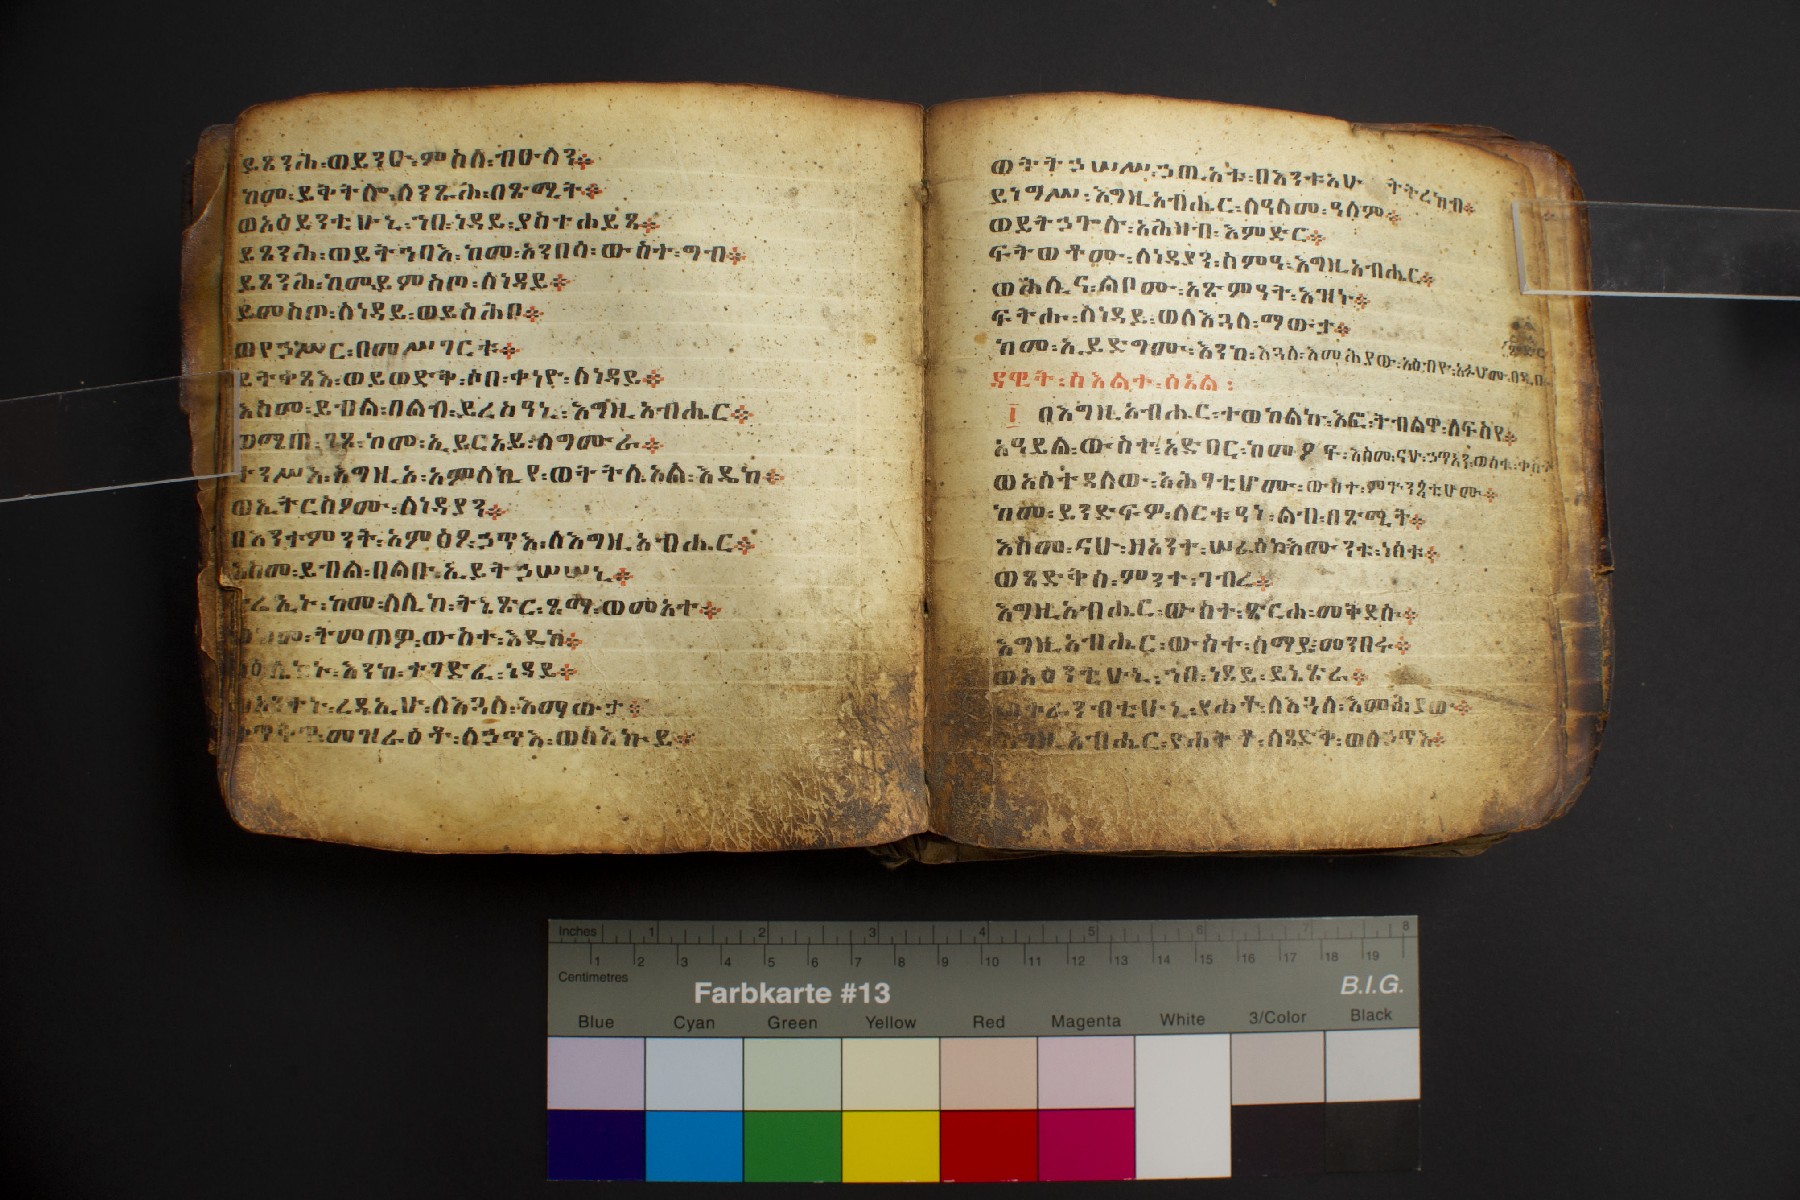 ይጼንሕ፡ወይንዑ፡ምስለ፡ብዑላን፨
ከመ፡ይቅትሎ፡ለንጹሕ፡በጽሚት፨
ወአዕይንቲሁኒ፡ኀበ፡ነዳይ፡ያስተሐይጻ፨
ይጼንሕ፡ወይትኀባእ፡ከመ፡አንበሳ፡ውስተ፡ግብ፨
ይጼንሕ፡ከመይምስጦ፡ለነዳይ፨
ይመስጦ፡ለነዳይ፡ወይስሕቦ፨
ወየኃሥር፡በመሥገርቱ፨
ይትቀጻእ፡ወይወድቅ፡ሶበ፡ቀነዮ፡ለነዳይ፨
እስመ፡ይብል፡በልቡ፡ይረስዓኒ፡እግዚአብሔር፨
ወሜጠ፡ገጾ፡ከመ፡ኢይርአይ፡ለግሙራ፨
ተንሥእ፡እግዚኦ፡አምላኪየ፡ወትትሌአል፡እዴከ፨
ወኢትርስዖሙ፡ለነዳያን፨
በእንተምንት፡አምዕዖ፡ኃጥእ፡ለእግዚአብሔር፨
እስመ፡ይብል፡በልቡ፡ኢይትኃሠሠኒ፨
ትሬኢኑ፡ከመ፡ለሊከ፡ትኔጽር፡ጻማ፡ወመአተ፨
ወከመ፡ትመጠዎ፡ውስተ፡እዴከ፨
ላዕሌከኑ፡እንከ፡ተገድፈ፡ነዳይ፨
ወአንተኑ፡ረዳኢሁ፡ለእጓለ፡እማውታ፨
ቀጥቅጥ፡መዝራዕቶ፡ለኃጥእ፡ወለእኩይ፨
ወትትኃሠሥ፡ኃጢአቱ፡በእንቲአሁ ትትረከብ፨
ይነግሥ፡እግዚአብሔር፡ለዓለመ፡ዓለም፨
ወይትኃጐሉ፡አሕዛብ፡እምድር፨
ፍትወቶሙ፡ለነዳያን፡ሰምዓ፡እግዚአብሔር፨
ወሕሊና፡ልቦሙ፡አጽምዓት፡እዝኑ፨
ፍትሑ፡ለነዳይ፡ወለእጓለ፡ማውታ፨
ከመ፡ኢይድግሙ፡እንከ፡እጓለ፡እመሕያው፡አዕብዮ፡አፉሆሙ፡በዲበ፡
ምድር
ዳዊት፡ስእልተ፡ሰአል፡
፲ በእግዚአብሔር፡ተወከልኩ፡እፎ፡ትብልዋ፡ለነፍስየ፨
አዓይል፡ውስተ፡አድባር፡ከመ፡ዖፍ፡እስመ፡ናሁ፡ኃጥአን፡ወሰቁ፡ቀስተ
ወአስተዳለው፡አሕፃቲሆሙ፡ውስተ፡ምጕንጳቲሆሙ፨
ከመ፡ይንድፍዎ፡ለርቱዓነ፡ልብ፡በጽሚት፨
እስመ፡ናሁ፡ዘአንተ፡ሠራዕከ፡እሙንቱ፡ነሰቱ፨
ወጻድቅሰ፡ምንተ፡ገብረ፨
እግዚአብሔር፡ውስተ፡ጽርሐ፡መቅደሱ፨
እግዚአብሔር፡ውስተ፡ሰማይ፡መንበሩ፨
ወአዕንቲሁኒ፡ኀበ፡ነዳይ፡ይኔጽራ፨
ወቀራንብቲሁኒ፡የሐቶ፡ለእጓለ፡እመሕያው፨
እግዚአብሔር፡የሐትቶ፡ለጻድቅ፡ወለኃጥእ፨
Inches 1 2 3 4 5 6 7 8
1 2 3 4 5 6 7 8 9 10 11 12 13 14 15 16 17 18 19
Centimetres
Farbkarte #13 B.I.G.
Blue Cyan Green Yellow Red Magenta White 3/Color Black